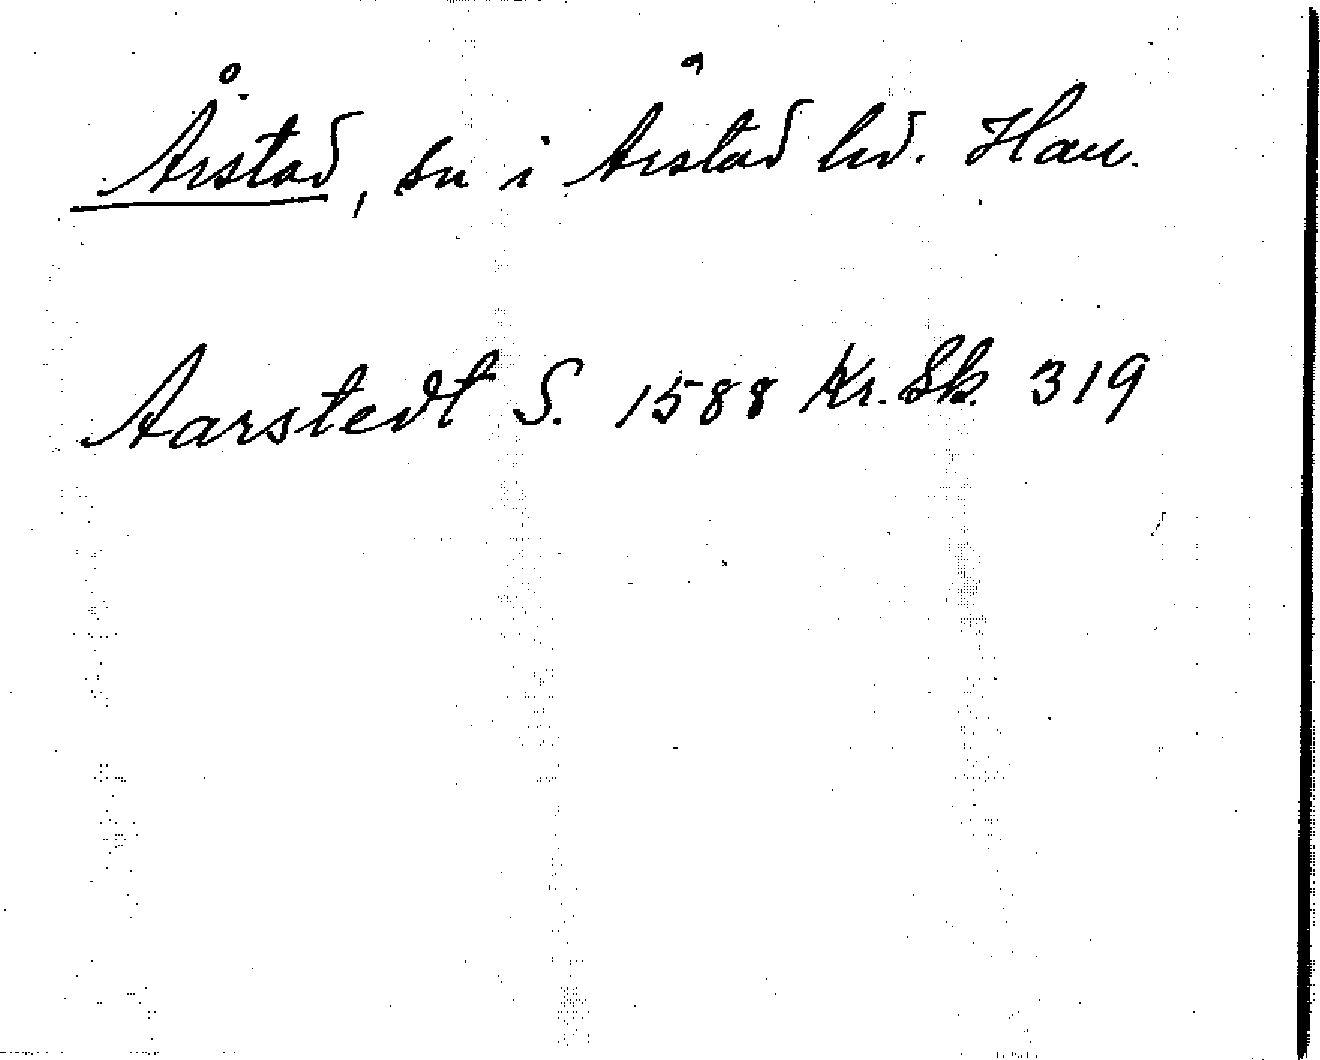 Årstad, sn i Årstad hd. Hau.
Aarstedt S. 1588 Kr. Sk. 319